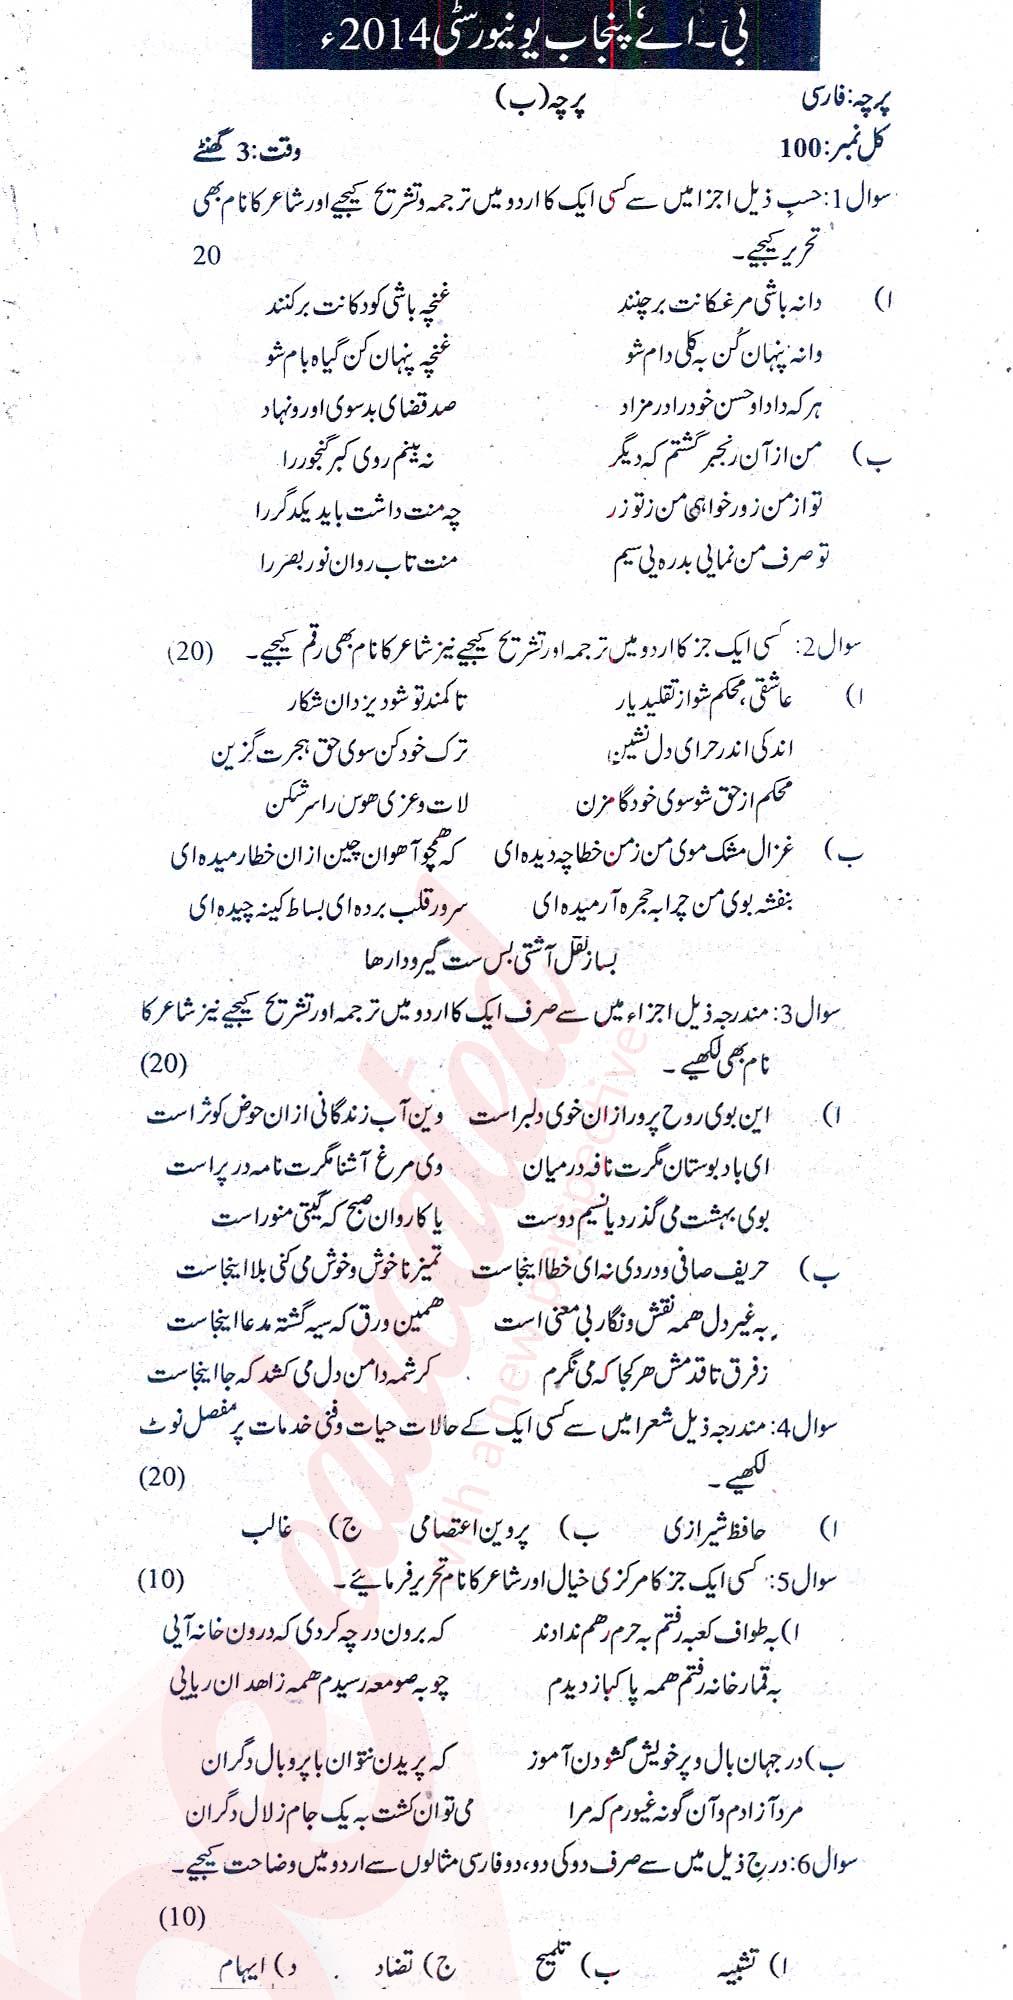 بی۔اے پنجاب یونیورسٹی 2014ء
پرچہ: فارسی پرچہ (ب)
کل نمبر: 100 وقت: 3 گھنٹے
سوال 1: حسبِ ذیل اجزا میں سے کسی ایک کا اردو میں ترجمہ و تشریح کیجیے اور شاعر کا نام بھی
تحریر کیجیے۔ 20
ا) دانہ باشی مرغکانت برچنند غنچہ باشی کودکانت برکنند
دانہ پنہان کُن بہ کلی دام شو غنچہ پنہان کن گیاہ بام شو
ہر کہ داد او حسن خود را در مزاد صد قضای بد سوی او رو نہاد
ب) من از آن رنجبر گشتم کہ دیگر نہ بینم روی کبر گنجور را
تو از من زور خواہی من ز تو زر چہ منت داشت باید یکدگر را
تو صرف من نمایی بدرہ یی سیم منت تاب روان نور بصر را
سوال 2: کسی ایک جز کا اردو میں ترجمہ اور تشریح کیجیے نیز شاعر کا نام بھی رقم کیجیے۔ (20)
ا) عاشقی، محکم شو از تقلید یار تا کمند تو شود یزدان شکار
اندکی اندر حرای دل نشین ترک خود کن سوی حق ہجرت گزین
محکم از حق شو سوی خود گامزن لات و عزی ھوس را سر شکن
ب) غزال مشک موی من زمن خطا چہ دیدہ ای کہ ھمچو آھوان چین از ان خطا رمیدہ ای
بنفشہ بوی من چرا بہ حجرہ آرمیدہ ای سرور قلب بردہ ای بساط کینہ چیدہ ای
بساز نقل آشتی بس ست گیر و دارھا
سوال 3: مندرجہ ذیل اجزاء میں سے صرف ایک کا اردو میں ترجمہ اور تشریح کیجیے نیز شاعر کا
نام بھی لکھیے۔ (20)
ا) این بوی روح پرور ازان خوی دلبر است وین آب زندگانی ازان حوض کوثر است
ای باد بوستان مگرت نافہ درمیان وی مرغ آشنا مگرت نامہ در پر است
بوی بہشت می گذرد یا نسیم دوست یا کاروان صبح کہ گیتی منور است
ب) حریف صافی و دردی نہ ای خطا اینجاست تمیز ناخوش و خوش می کنی بلا اینجاست
بہ غیر دل ھمہ نقش و نگار بی معنی است ھمین ورق کہ سیہ گشتہ مدعا اینجاست
ز فرق تا قدمش ھر کجا کہ می نگرم کرشمہ دامن دل می کشد کہ جا اینجاست
سوال 4: مندرجہ ذیل شعرا میں سے کسی ایک کے حالات حیات و فنی خدمات پر مفصل نوٹ
لکھیے۔ (20)
ا) حافظ شیرازی ب) پروین اعتصامی ج) غالب
سوال 5: کسی ایک جز کا مرکزی خیال اور شاعر کا نام تحریر فرمائیے۔ (10)
ا) بہ طواف کعبہ رفتم بہ حرم رھم ندادند کہ برون در چہ کردی کہ درون خانہ آیی
بہ قمار خانہ رفتم ھمہ پاکباز دیدم چو بہ صومعہ رسیدم ھمہ زاھد ان ریایی
ب) در جہان بال و پر خویش گشودن آموز کہ پریدن نتوان با پر و بال دگران
مرد آزادم و آن گونہ غیورم کہ مرا می توان کشت بہ یک جام زلال دگران
سوال 6: درج ذیل میں سے صرف دو کی دو، دو فارسی مثالوں سے اردو میں وضاحت کیجیے۔
(10)
ا) تشبیہ ب) تلمیح ج) تضاد د) ایہام
educated
with a new perspective